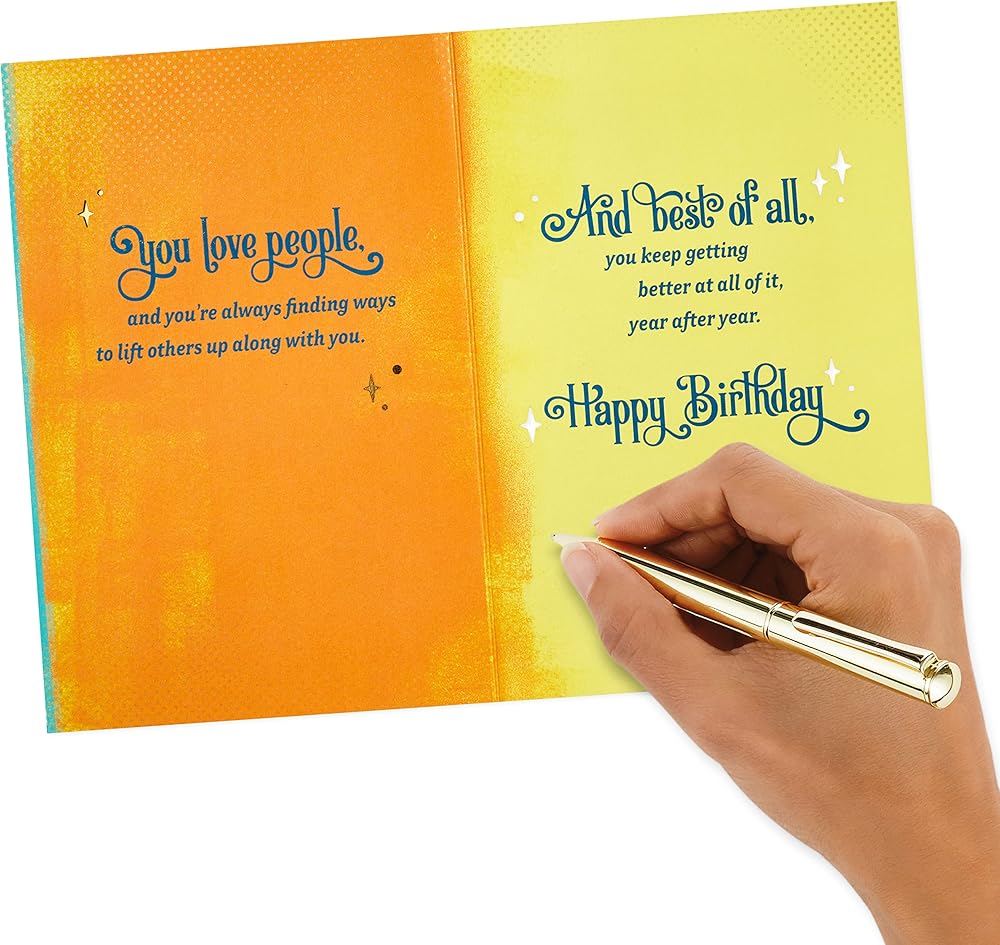 You love people,
and you're always finding ways
to lift others up along with you.
And best of all,
you keep getting
better at all of it,
year after year.
Happy Birthday